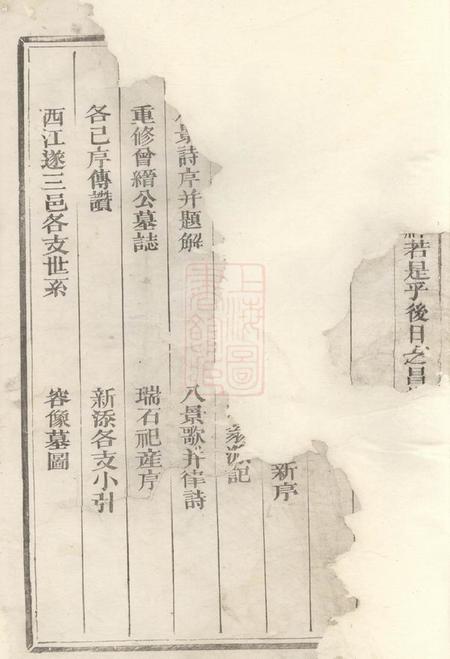 若是乎後日之昌
新序
源記
景詩序并題解
八景歌并律詩
重修曾縉公墓誌
瑞石祀產序
各已序傳讚
新添各支小引
西江遂三邑各支世系
容像墓圖
上海圖書館藏